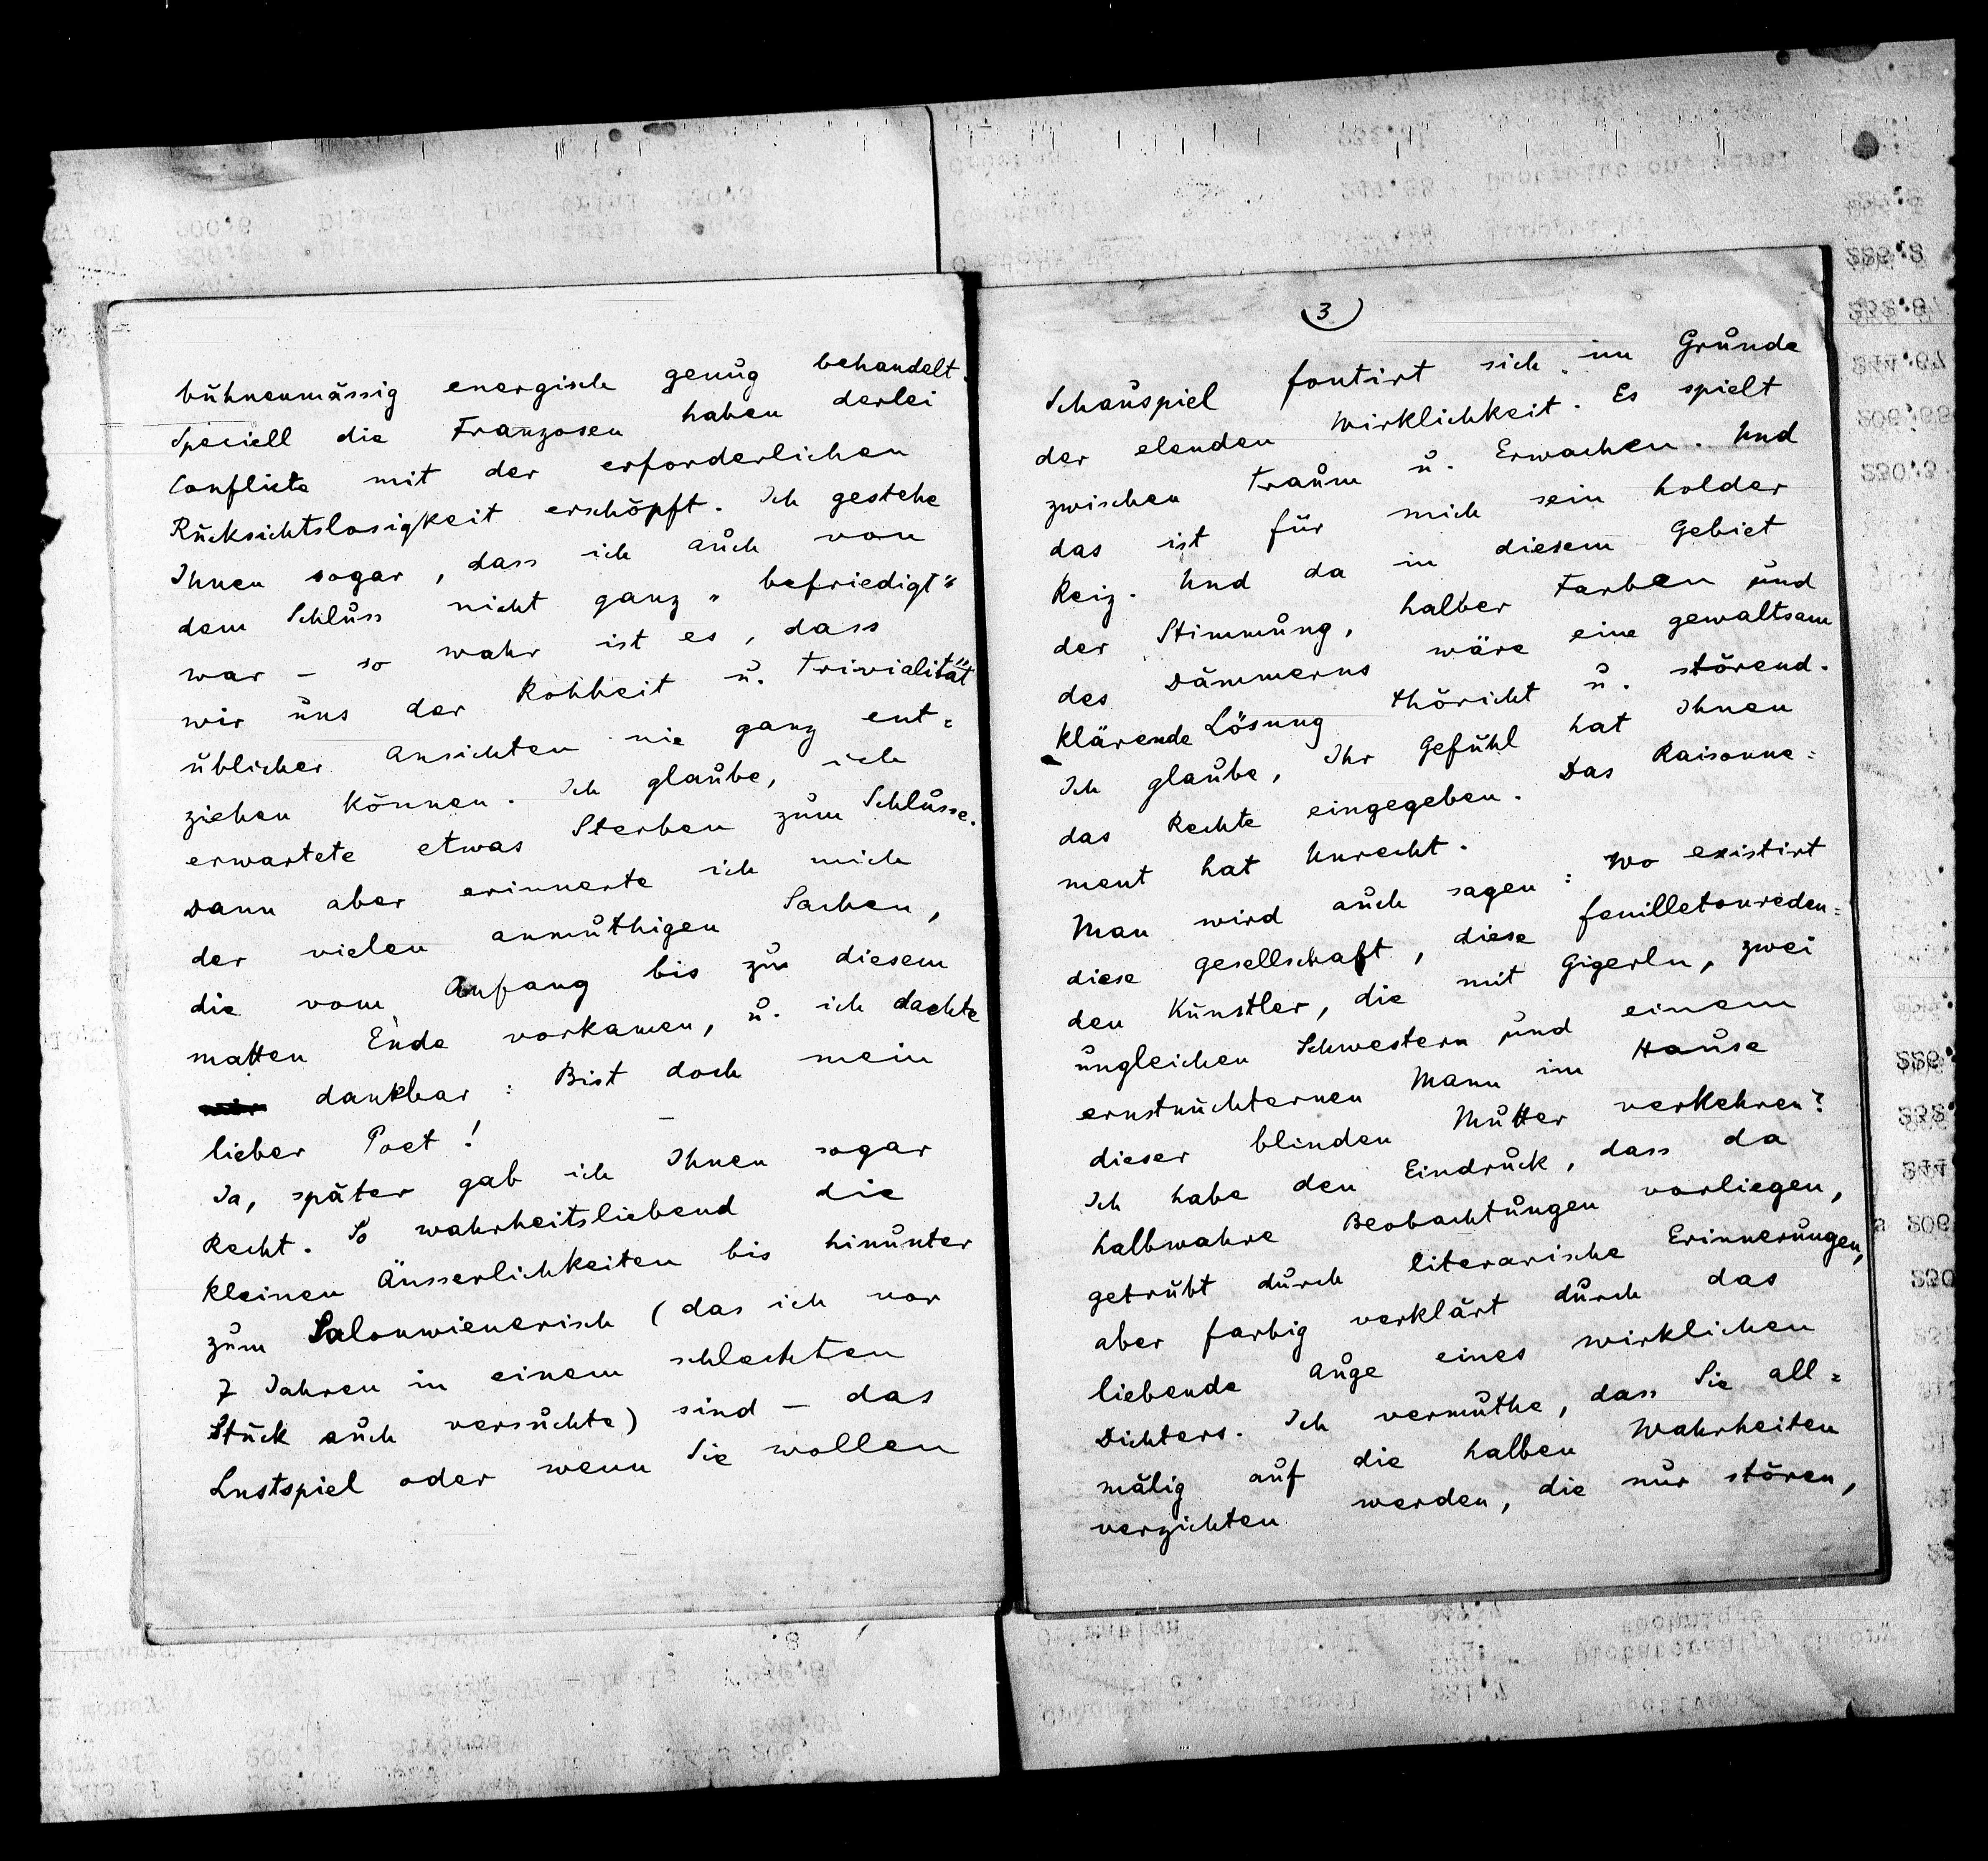 bühnenmässig energisch genug behandelt.
Speciell die Franzosen haben derlei
Conflicte mit der erforderlichen
Rücksichtslosigkeit erschöpft. Ich gestehe
Ihnen sogar, dass ich auch von
dem Schluss nicht ganz „befriedigt“
war – so wahr ist es, dass
wir uns der Rohheit u. Trivialität
üblicher Ansichten nie ganz ent=
ziehen können. Ich glaube, ich
erwartete etwas Sterben zum Schlusse.
Dann aber erinnerte ich mich
der vielen anmuthigen Sachen,
die vom Anfang bis zu diesem
matten Ende vorkamen, u. ich dachte
dankbar: Bist doch mein
lieber Poet! –
Ja, später gab ich Ihnen sogar
Recht. So wahrheitsliebend die
kleinen Äusserlichkeiten bis hinunter
zum Salonwienerisch (das ich vor
7 Jahren in einem schlechten
Stück auch versuchte) sind – das
Lustspiel oder wenn Sie wollen
3
Schauspiel foutirt sich im Grunde
der elenden Wirklichkeit. Es spielt
zwischen Traum u. Erwachen. Und
das ist für mich sein holder
Reiz. Und da in diesem Gebiet
der Stimmung, halber Farben und
des Dämmerns wäre eine gewaltsam
klärende Lösung thöricht u. störend.
Ich glaube, Ihr Gefühl hat Ihnen
das Rechte eingegeben. Das Raisonne=
ment hat Unrecht.
Man wird auch sagen: Wo existirt
diese Gesellschaft, diese feuilletonreden=
den Künstler, die mit Gigerln, zwei
ungleichen Schwestern und einem
ernstnüchternen Mann im Hause
dieser blinden Mutter verkehren?
Ich habe den Eindruck, dass da
halbwahre Beobachtungen vorliegen,
getrübt durch literarische Erinnerungen,
aber farbig verklärt durch das
liebende Auge eines wirklichen
Dichters. Ich vermuthe, dass Sie all=
mälig auf die halben Wahrheiten
verzichten werden, die nur stören,